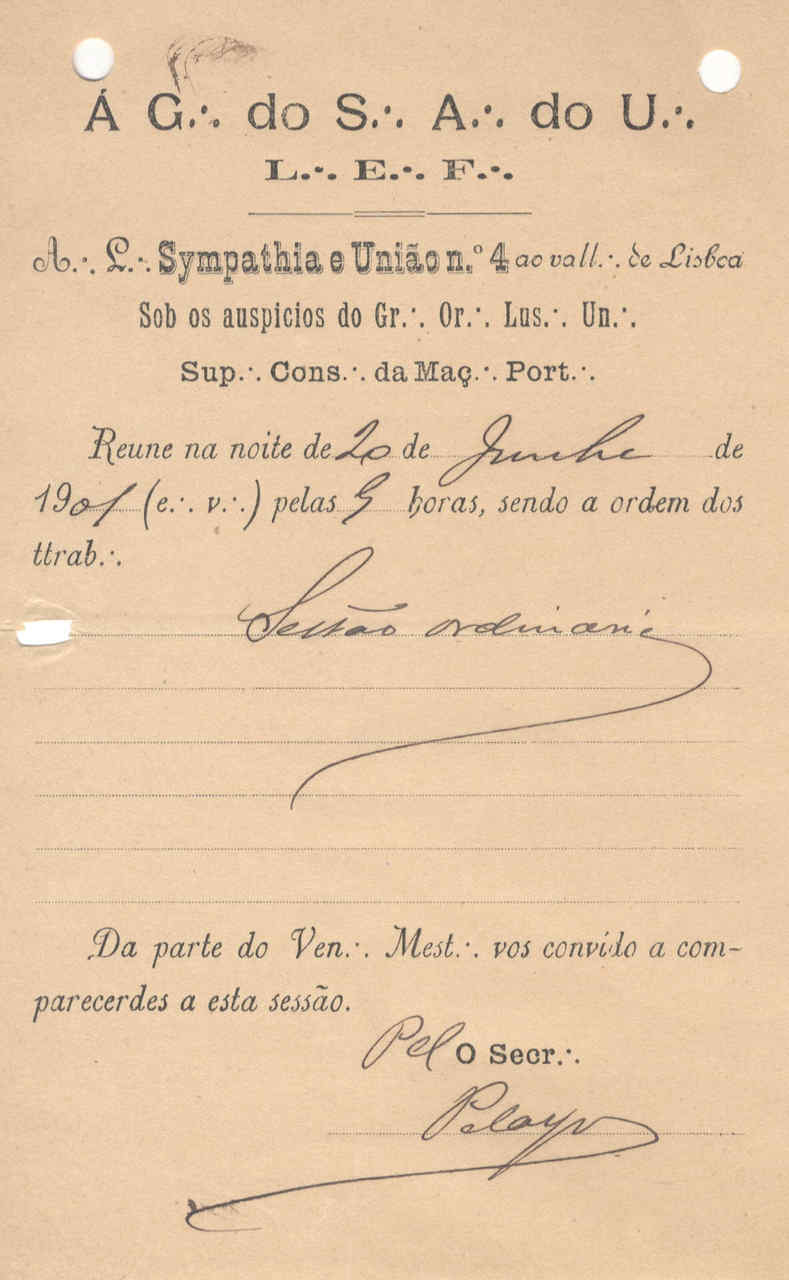 Á G∴ do S∴ A∴ do U∴
L∴ E∴ F∴
A∴ L∴ Sympathia e União n.º 4 ao vall∴ de Lisboa
Sob os auspicios do Gr∴ Or∴ Lus∴ Un∴
Sup∴ Cons∴ da Maç∴ Port∴
Reune na noite de 20 de Junho de
1901 (e∴ v∴) pelas 9 horas, sendo a ordem dos
ttrab∴
Sessão ordinaria
Da parte do Ven∴ Mest∴ vos convido a com-
parecerdes a esta sessão.
Pel O Secr∴
Pelayo